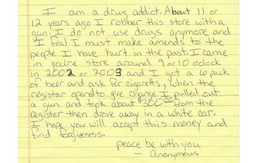 I am a drug addict. About 11 or
12 years ago I robber this store with a
gun. I do not use drugs anymore and
I feal I must make amends to the
people I have hurt in the past. I came
in youre store around 9 or 10 oclock
in 2002 or 2003 and I got a 6 pack
of beer and ask for cigaretts, when the
register opend to give change I pulled out
a gun and took about $300.00 from the
register then drove away in a white car.
I hope you will accept this money and
find forgiveness.
peace be with you
- Anonymous